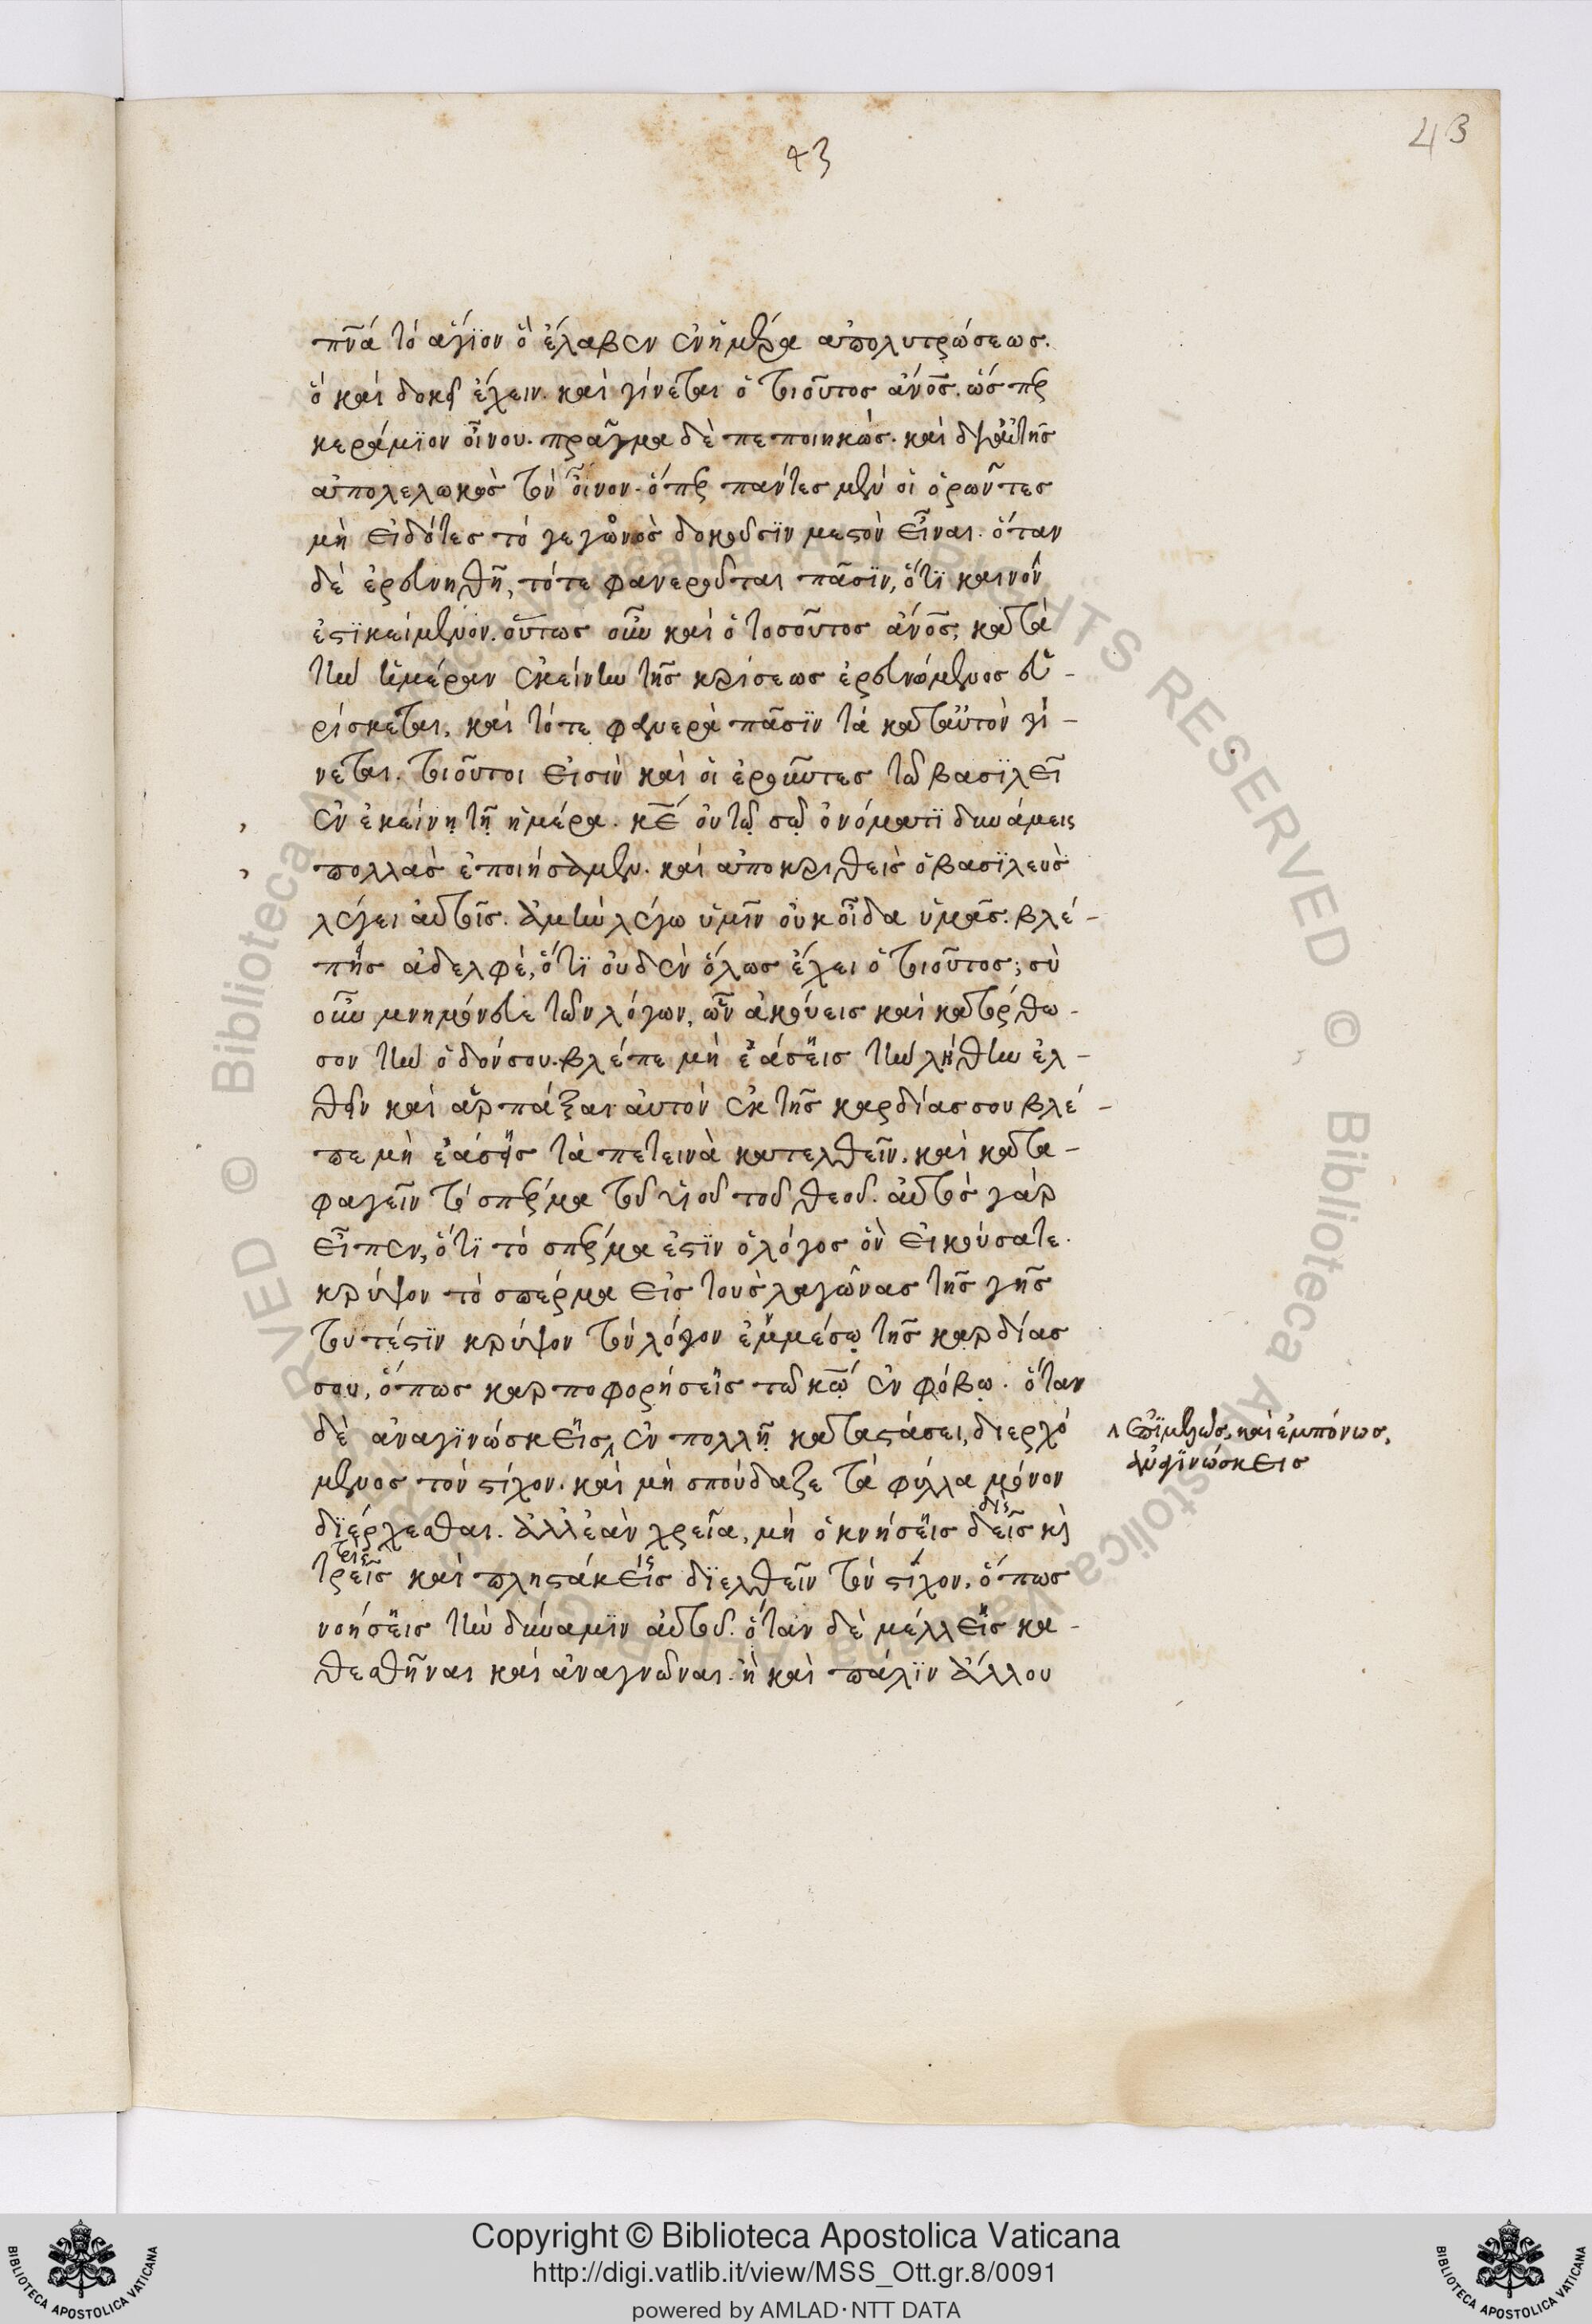 43
43
πν̅ά τὸ ἅγϊον ὃ ἔλαβεν ἐν ἡμέρα ἀπολυτρώσεως.
ὃ καὶ δοκεῖ ἔχειν. καὶ γίνεται ὁ τοιοῦτος ἄν̅ος. ὥσπερ
κεράμϊον οἴνου. πρᾶγμα δὲ πεποιηκὼς. καὶ δϊαὐτῆς
ἀπολελωκὸς τὸν οἶνον. ὅπερ πάντες μὲν οἱ ὁρῶντες
μὴ εἰδότες τὸ γεγωνὸς δοκοῦσϊν μεστὸν εἶναι. ὅταν
δὲ ἐρευνηθῆ, τότε φανεροῦται πᾶσϊν, ὅτϊ καινόν
ἐστϊ κείμενον. οὕτως οὖν καὶ ὁ τοσοῦτος ἄν̅ος, κατὰ
τὴν ἡμέραν ἐκείνην τῆς κρίσεως ἐρευνώμενος εὑ-
ρίσκεται, καὶ τότε φανερὰ πᾶσϊν τὰ καταὐτὸν γί-
νεται. τοιοῦτοι εἰσὶν καὶ οἱ ἐροῦντες τῶ βασϊλεῖ
ἐν ἐκείνῃ τῇ ἡμέρα. κ̅ε ἐν τῷ σῷ ὀνόματϊ δυνάμεις
πολλὰς ἐποιήσαμεν. καὶ ἀποκριθεὶς ὁ βασϊλεὺς
λέγει αὐτοῖς. ἀμὴν λέγω ὑμῖν οὐκ οἶδα ὑμᾶς. βλέ-
πῃς ἀδελφὲ, ὅτϊ οὐδὲν ὅλως ἔχει ὁ τοιοῦτος; σὺ
οὖν μνημόνευε τῶν λόγων, ὧν ἀκούεις καὶ κατόρθω-
σον τὴν ὁδόν σου. βλέπε μὴ ἐάσεις τὴν λήθην ἐλ-
θεῖν καὶ ἁρπάξαι αὐτὸν ἐκ τῆς καρδίας σου βλέ-
πε μὴ ἐάσῃς τὰ πετεινὰ κατελθεῖν. καὶ κατα-
φαγεῖν τὸ σπέρμα τοῦ υἱοῦ τοῦ θεοῦ. αὐτὸς γὰρ
εἶπεν, ὅτϊ τὸ σπέρμα ἐστϊν ὁ λόγος ὃν εἰκούσατε.
κρύψον τὸ σπέρμα εἰς τοὺς λαγῶνας τῆς γῆς
τουτέστϊν κρύψον τὸν λόγον ἐμμέσῳ τῆς καρδίας
σου, ὅπως καρποφορήσεις τῶ κ̅ῳ ἐν φόβῳ. ὅταν
δὲ ἀναγϊνώσκεις, ἐν πολλῇ καταστάσει, διερχό
μενος τὸν στίχον. καὶ μὴ σπούδαζε τὰ φύλλα μόνον
δϊέρχεσθαι. ἀλλἐὰν χρεῖα, μὴ ὀκνήσεις δεῖς καὶ
τρεῖς καὶ πληστάκεις δϊελθεῖν τὸν στίχον. ὅπως
νοήσεις τὴν δύναμϊν αὐτοῦ. ὅταν δὲ μέλλεις κα-
θεσθῆναι καὶ ἀναγνῶναι. ἢ καὶ πάλϊν ἄλλου
ἐπϊμελῶς, καὶ ἐμπόνως,
ἀναγϊνώσκεις
Copyright © Biblioteca Apostolica Vaticana
http://digi.vatlib.it/view/MSS_Ott.gr.8/0091
powered by AMLAD·NTT DATA